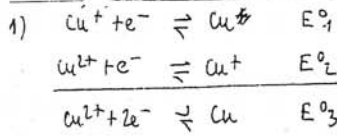 1) Cu⁺ + e⁻ ⇌ Cu E⁰₁
Cu²⁺ + e⁻ ⇌ Cu⁺ E⁰₂
Cu²⁺ + 2e⁻ ⇌ Cu E⁰₃